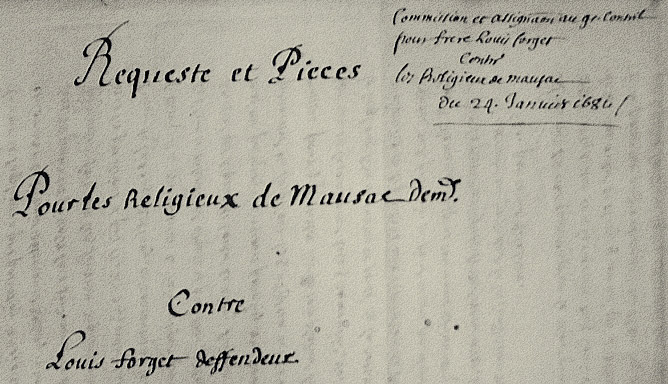 Commission et assignaon au gr. Conseil
pour frere Louis forget
Contre
les Religieux de mausac
du 24. Januier 1684 /
Requeste et Pieces
Pour les Religieux de Mausac demrs.
Contre
Louis forget deffendeur